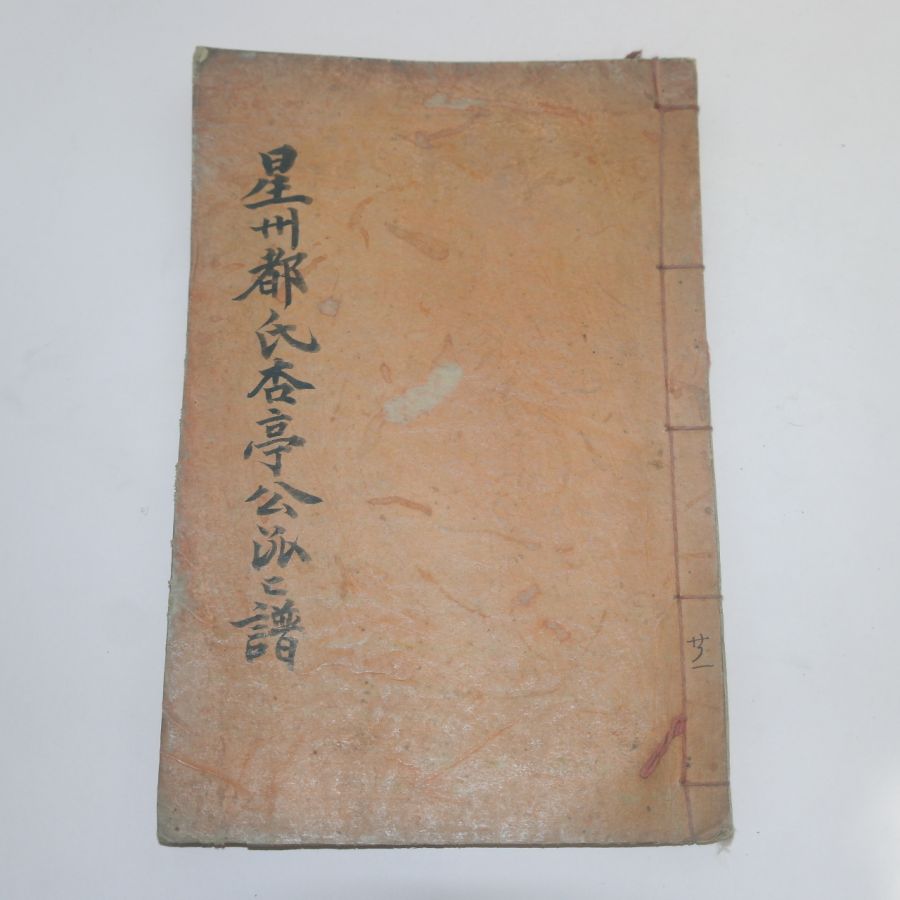 星州都氏杏亭公派〻譜
共一